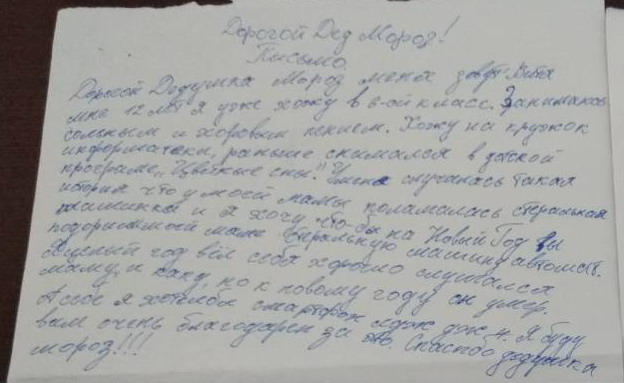 Дорогой Дед Мороз!
Письмо
Дорогой Дедушка Мороз меня зовут Витя
мне 12 лет я уже хожу в 6-ой класс. Занимаюсь
сольным и хоровым пением. Хожу на кружок
информатики, раньше снимался в детской
програме „Цветные сны". Умена случилась такая
история что у моей мамы поламалась стеральная
машинка и я хочу что-бы на Новый Год вы
подорили моей маме стеральную машину автомат.
Я целый год вёл себя хорошо слушался
маму, и папу, но к новому году он умер.
А себе я хотелбы смартфон 4. Я буду
вам очень благодарен за это. Спасибо дедушка
мороз!!!